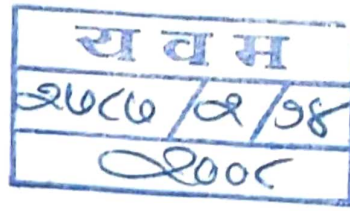 य व म
२७८७/२/१४
२००८